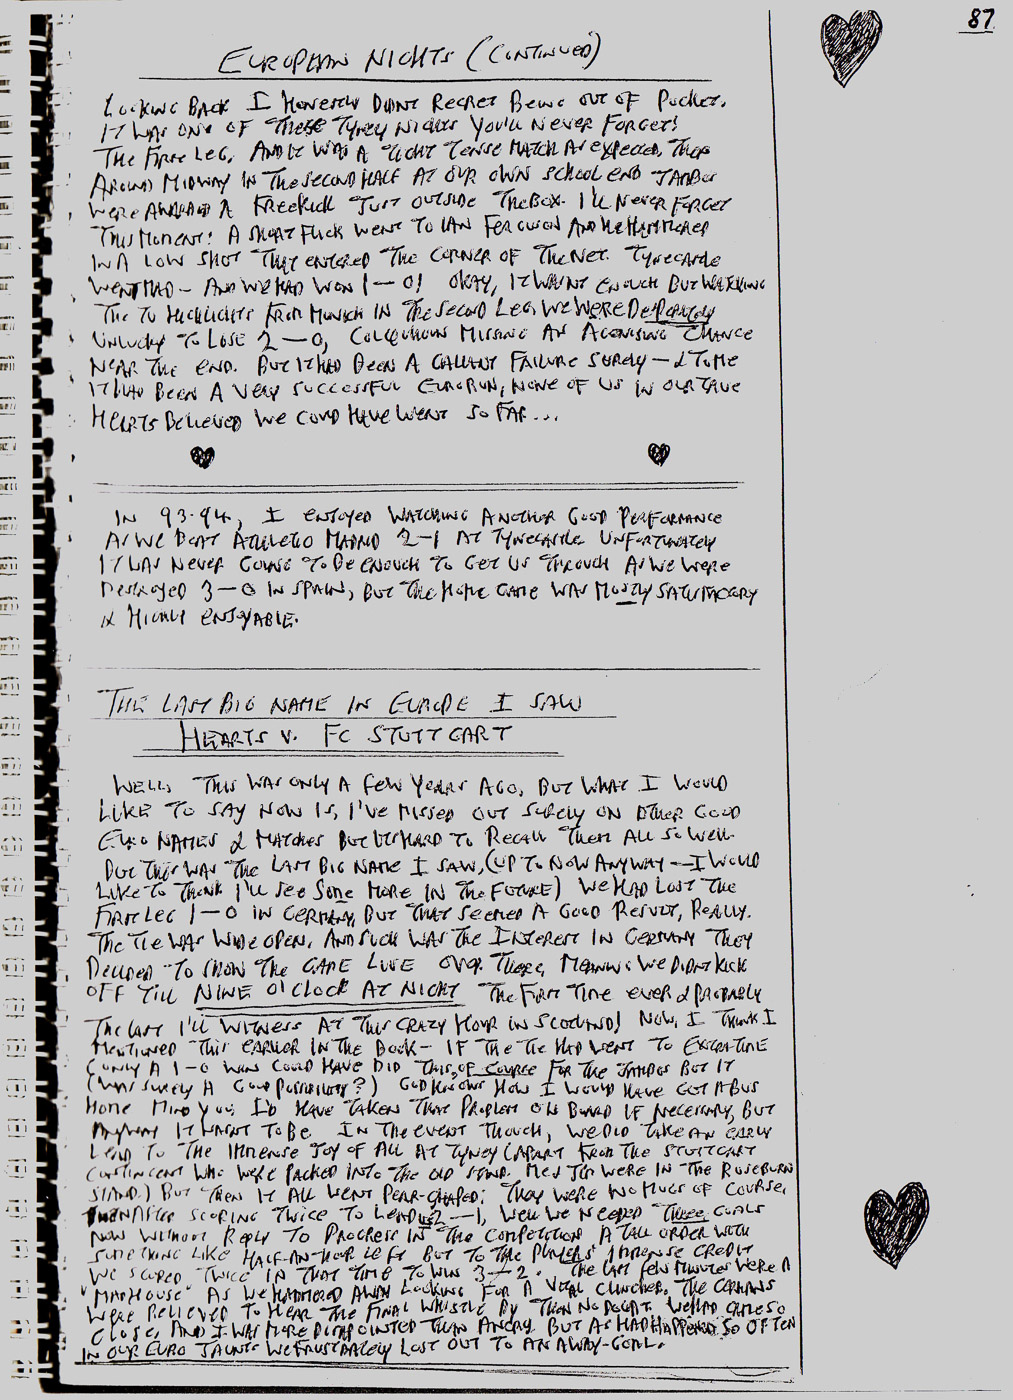 87.
EUROPEAN NIGHTS (CONTINUED)
LOOKING BACK I HONESTLY DIDNT REGRET BEING OUT OF POCKET.
IT WAS ONE OF THESE TYNEY NIGHTS YOU'LL NEVER FORGET!
THE FIRST LEG, AND IT WAS A TIGHT TENSE MATCH AS EXPECTED, THEN
AROUND MIDWAY IN THE SECOND HALF AT OUR OWN SCHOOL END JAMBOS
WERE AWARDED A FREEKICK JUST OUTSIDE THE BOX. I'LL NEVER FORGET
THIS MOMENT! A SHORT FLICK WENT TO IAN FERGUSON AND HE HAMMERED
IN A LOW SHOT THAT ENTERED THE CORNER OF THE NET. TYNECASTLE
WENT MAD - AND WE HAD WON 1-0! OKAY, IT WASN'T ENOUGH BUT WATCHING
THE TV HIGHLIGHTS FROM MUNICH IN THE SECOND LEG, WE WERE DESPERATELY
UNLUCKY TO LOSE 2-0, COLQUHOUN MISSING AN AGONISING CHANCE
NEAR THE END. BUT IT HAD BEEN A GALLANT FAILURE SURELY - & TO ME
IT HAD BEEN A VERY SUCCESSFUL EURO RUN, NONE OF US IN OUR TRUE
HEARTS BELIEVED WE COULD HAVE WENT SO FAR...
IN 93-94, I ENJOYED WATCHING ANOTHER GOOD PERFORMANCE
AS WE BEAT ATHLETICO MADRID 2-1 AT TYNECASTLE UNFORTUNATELY
IT WAS NEVER GOING TO BE ENOUGH TO GET US THROUGH AS WE WERE
DESTROYED 3-0 IN SPAIN, BUT THE HOME GAME WAS MOSTLY SATISFACTORY
& HIGHLY ENJOYABLE.
THE LAST BIG NAME IN EUROPE I SAW
HEARTS V. FC STUTTGART
WELL, THIS WAS ONLY A FEW YEARS AGO, BUT WHAT I WOULD
LIKE TO SAY NOW IS, I'VE MISSED OUT SURELY ON OTHER GOOD
EURO NAMES & MATCHES BUT ITS HARD TO RECALL THEM ALL SO WELL.
BUT THIS WAS THE LAST BIG NAME I SAW, (UP TO NOW ANYWAY - I WOULD
LIKE TO THINK I'LL SEE SOME MORE IN THE FUTURE) WE HAD LOST THE
FIRST LEG 1-0 IN GERMANY, BUT THAT SEEMED A GOOD RESULT, REALLY.
THE TIE WAS WIDE OPEN, AND SUCH WAS THE INTEREST IN GERMANY THEY
DECIDED TO SHOW THE GAME LIVE OVER THERE, MEANING WE DIDNT KICK
OFF TILL NINE O'CLOCK AT NIGHT THE FIRST TIME EVER & PROBABLY
THE LAST I'LL WITNESS AT THIS CRAZY HOUR IN SCOTLAND! NOW, I THINK I
MENTIONED THIS EARLIER IN THE BOOK - IF THE TIE HAD WENT TO EXTRA-TIME
(ONLY A 1-0 WIN COULD HAVE DID THIS, OF COURSE FOR THE JAMBOS BUT IT
WAS SURELY A GOOD POSSIBILITY?) GOD KNOWS HOW I WOULD HAVE GOT A BUS
HOME MIND YOU I'D HAVE TAKEN THAT PROBLEM ON BOARD IF NECESSARY, BUT
ANYWAY IT WASNT TO BE. IN THE EVENT THOUGH, WE DID TAKE AN EARLY
LEAD TO THE IMMENSE JOY OF ALL AT TYNEY (APART FROM THE STUTTGART
CONTINGENT WHO WERE PACKED INTO THE OLD STAND. ME & JIM WERE IN THE ROSEBURN
STAND.) BUT THEN IT ALL WENT PEAR-SHAPED; THEY WERE NO MUGS OF COURSE,
AFTER SCORING TWICE TO LEAD US 2-1, WELL WE NEEDED THREE GOALS
NOW WITHOUT REPLY TO PROGRESS IN THE COMPETITION A TALL ORDER WITH
SOMETHING LIKE HALF-AN-HOUR LEFT BUT TO THE PLAYERS' IMMENSE CREDIT
WE SCORED TWICE IN THAT TIME TO WIN 3-2. THE LAST FEW MINUTES WERE A
"MADHOUSE" AS WE HAMMERED AWAY LOOKING FOR A VITAL CLINCHER. THE GERMANS
WERE RELIEVED TO HEAR THE FINAL WHISTLE BY THEN NO DOUBT. WE HAD CAME SO
CLOSE, AND I WAS MORE DISAPPOINTED THAN ANGRY. BUT AS HAD HAPPENED SO OFTEN
IN OUR EURO JAUNTS WE FRUSTRATELY LOST OUT TO AN AWAY-GOAL.